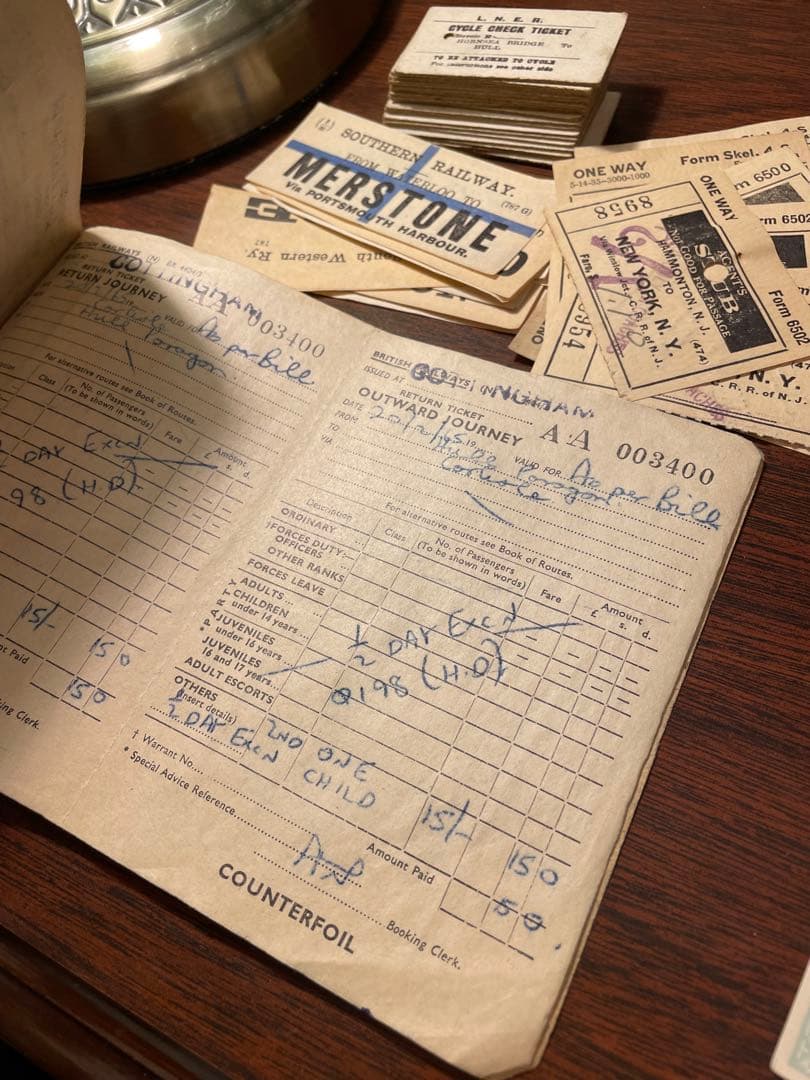 L. N. E. R.
CYCLE CHECK TICKET
HORNSEA BRIDGE To
HULL
TO BE ATTACHED TO CYCLE
For instructions see other side
SOUTHERN RAILWAY.
(787 G)
FROM WATERLOO TO
MERSTONE
Via PORTSMOUTH HARBOUR.
outh Western Ry.
787
ONE WAY
Form Skel.
5-14-55-5000-1000
rm 6500
rm 6502
ONE WAY
8958
AGENT'S
STUB
NOT GOOD FOR PASSAGE
HAMMONTON, N. J. (474)
TO
NEW YORK, N. Y.
C. R. R. of N. J.
Form 6502
8954
N. Y.
C. R. R. of N. J.
BRITISH RAILWAYS (N)
COTTINGHAM
RETURN TICKET
RETURN JOURNEY
AA 003400
VALID FOR As per Bill
Carlisle
Hull Paragon
For alternative routes see Book of Routes.
Class
No. of Passengers
(To be shown in words)
Fare
Amount
s. d.
½ DAY EXCN
98 (H.D)
15/-
15 0
nt Paid
15 0
ing Clerk.
BRITISH RAILWAYS (N)
ISSUED AT COTTINGHAM
RETURN TICKET
OUTWARD JOURNEY
AA 003400
DATE
19
VALID FOR As per Bill
FROM
Paragon
TO
Carlisle
VIA
For alternative routes see Book of Routes.
Description
Class
No. of Passengers
(To be shown in words)
Fare
Amount
£ s. d.
ORDINARY
FORCES DUTY:—
OFFICERS
OTHER RANKS
FORCES LEAVE
PARTY
ADULTS
CHILDREN
under 14 years
JUVENILES
under 16 years
JUVENILES
16 and 17 years
ADULT ESCORTS
½ DAY EXCN
198 (H.D)
OTHERS
(insert details)
½ DAY EXCN 2ND ONE
CHILD
15/-
15 0
† Warrant No.
* Special Advice Reference
Amount Paid
Booking Clerk.
COUNTERFOIL